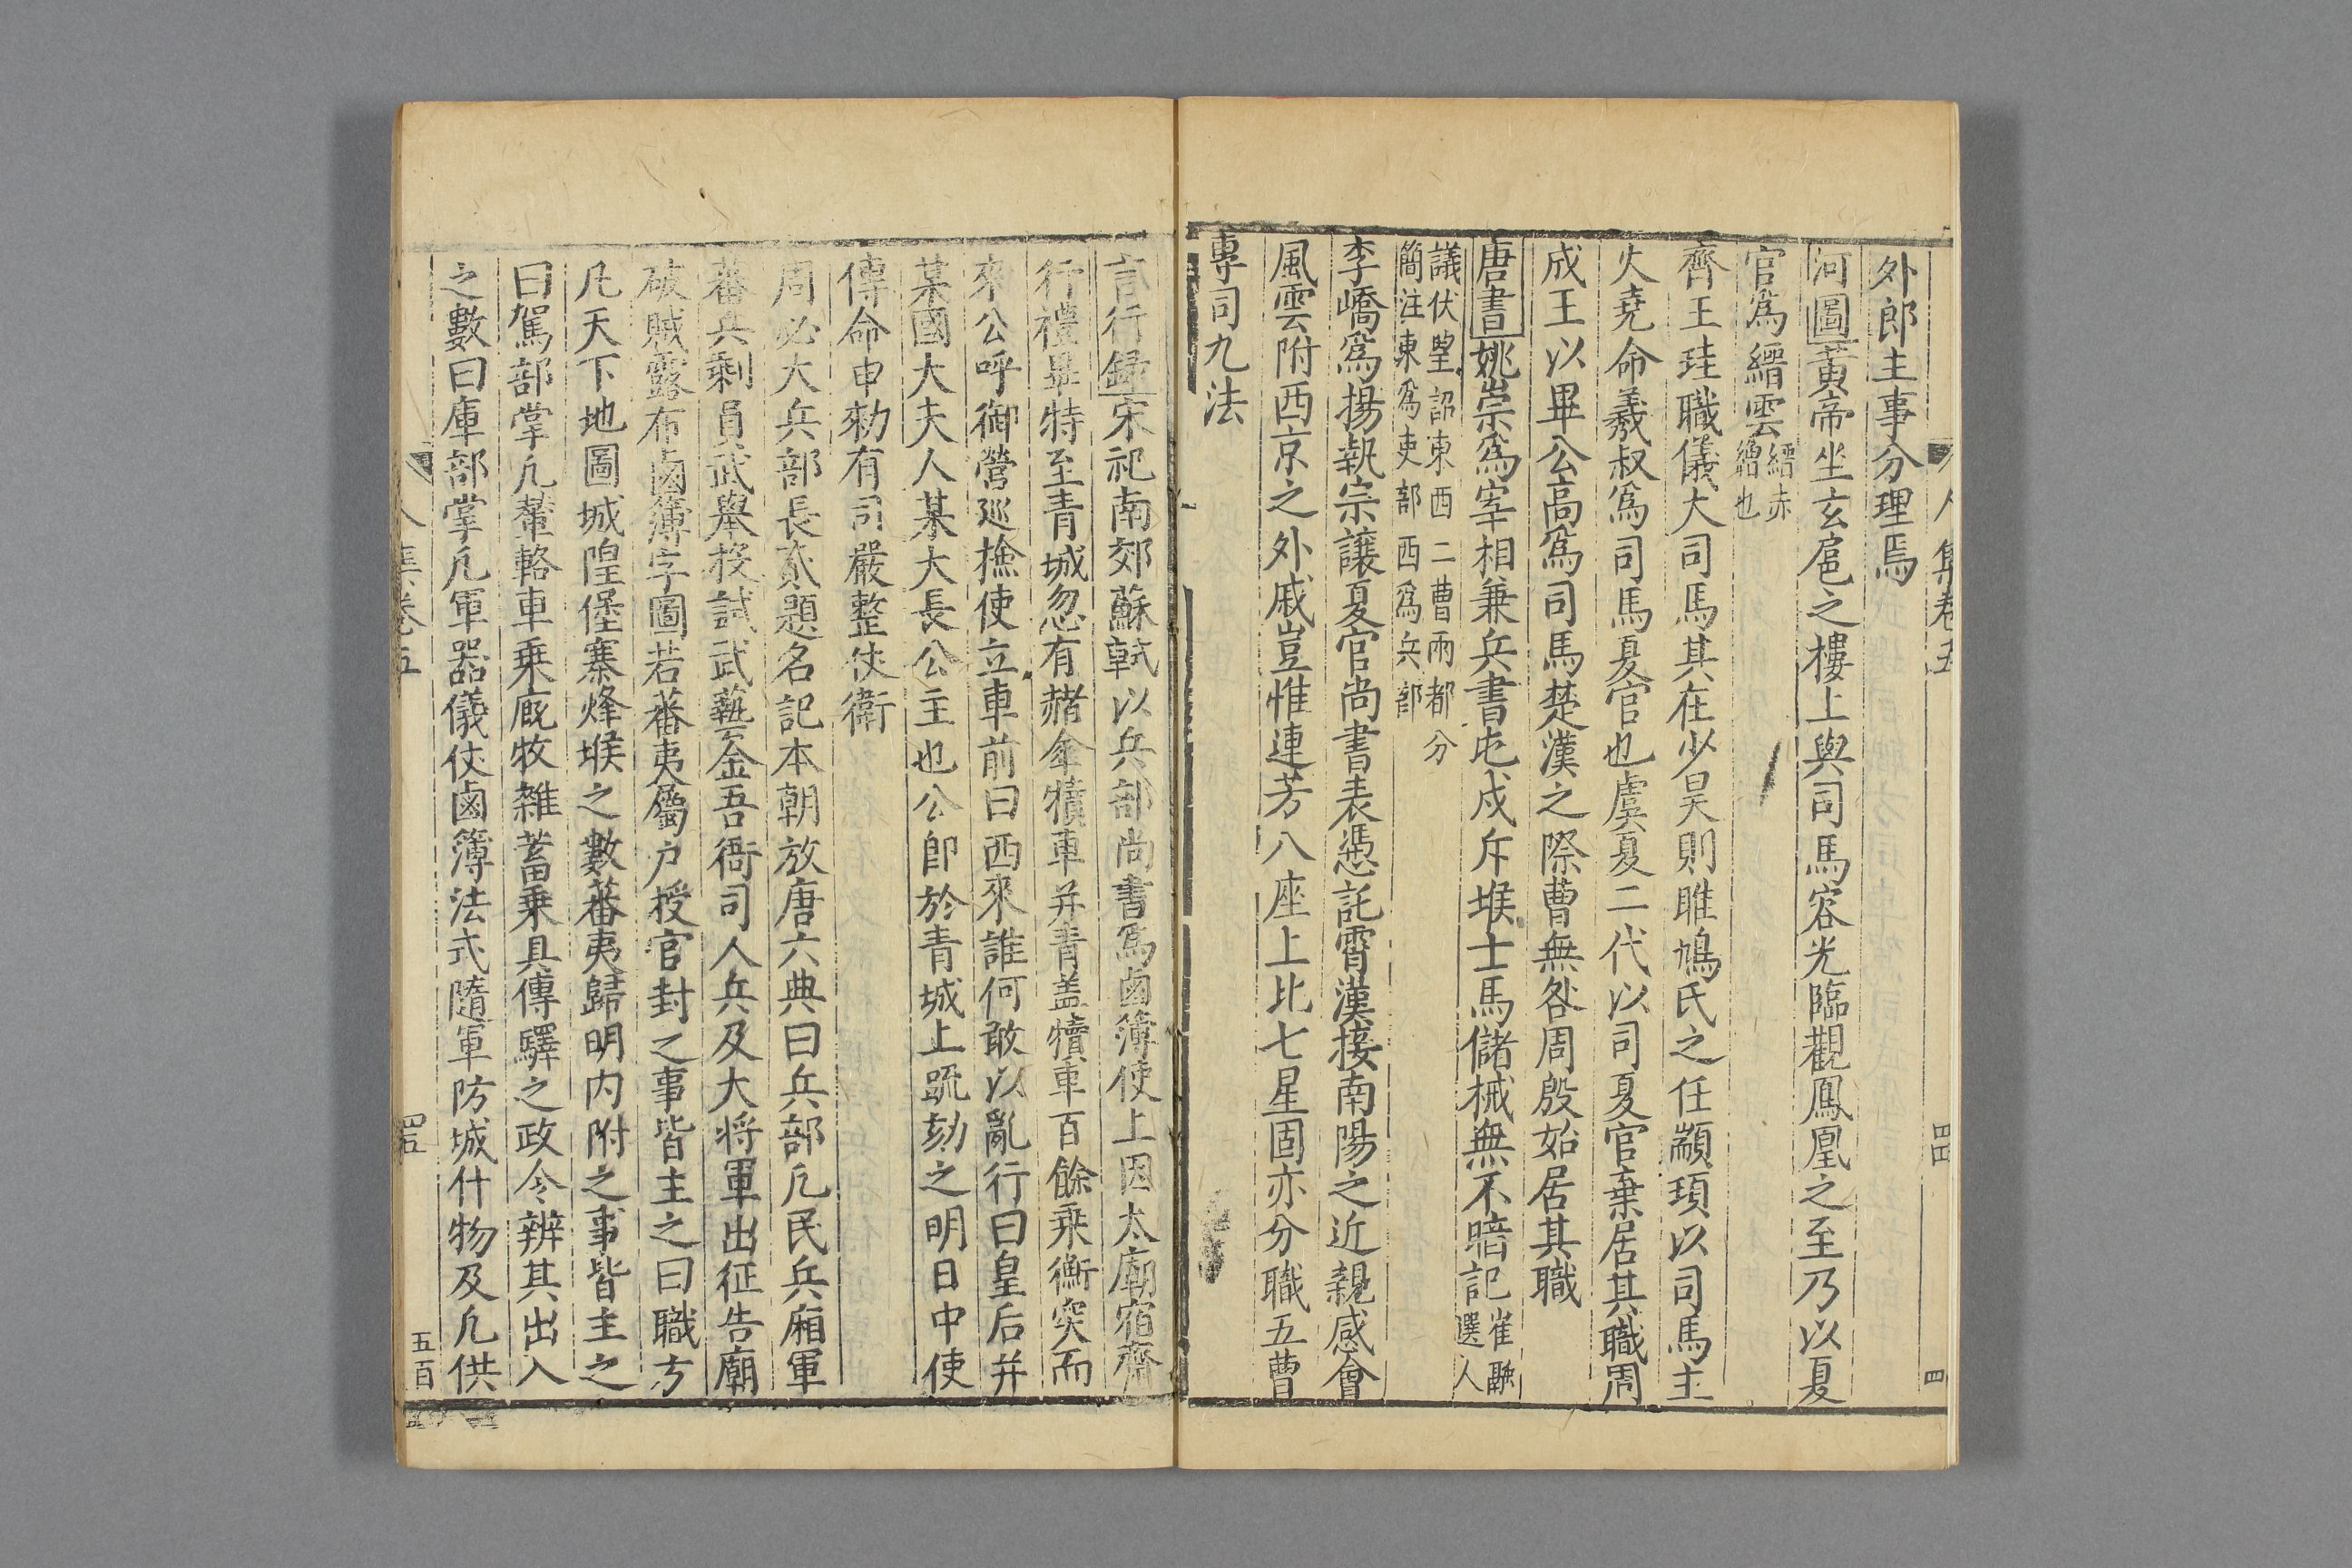 外郎主事分理焉
河圖黃帝坐玄扈之樓上與司馬容光臨觀鳳凰之至乃以夏
官為縉雲縉赤繒也
齊王珪職儀大司馬其在少昊則雎鳩氏之任顓頊以司馬主
火堯命羲叔為司馬夏官也虞夏二代以司夏官棄居其職周
成王以畢公高為司馬楚漢之際曹無咎周殷始居其職
唐書姚崇為宰相兼兵書屯戍斥堠士馬儲械無不暗記崔融選人
議伏望詔東西二曹兩都分
簡注東為吏部西為兵部
李嶠為揚執宗讓夏官尚書表憑託霄漢接南陽之近親感會
風雲附西京之外戚豈惟連芳八座上比七星固亦分職五曹
專司九法
集卷五
四四
四
言行錄宋祀南郊蘇軾以兵部尚書為鹵簿使上因太廟宿齋
行禮畢特至青城忽有赭傘犢車并青盖犢車百餘乘衝突而
來公呼御營巡撿使立車前曰西來誰何敢以亂行曰皇后并
某國大夫人某大長公主也公卽於青城上䟽劾之明日中使
傳命申勑有司嚴整仗衛
周必大兵部長貳題名記本朝放唐六典曰兵部凡民兵廂軍
蕃兵剩員武舉挍試武藝金吾衙司人兵及大將軍出征告廟
破賊露布鹵簿字圖若蕃夷屬户授官封之事皆主之曰職方
凡天下地圖城隍堡寨烽堠之數蕃夷歸明内附之事皆主之
曰駕部掌凡輦輅車乗廐牧雜畜乗具傳驛之政令辨其出入
之數曰庫部掌凡軍器儀仗鹵簿法式隨軍防城什物及凡供
集卷五
四五
五百